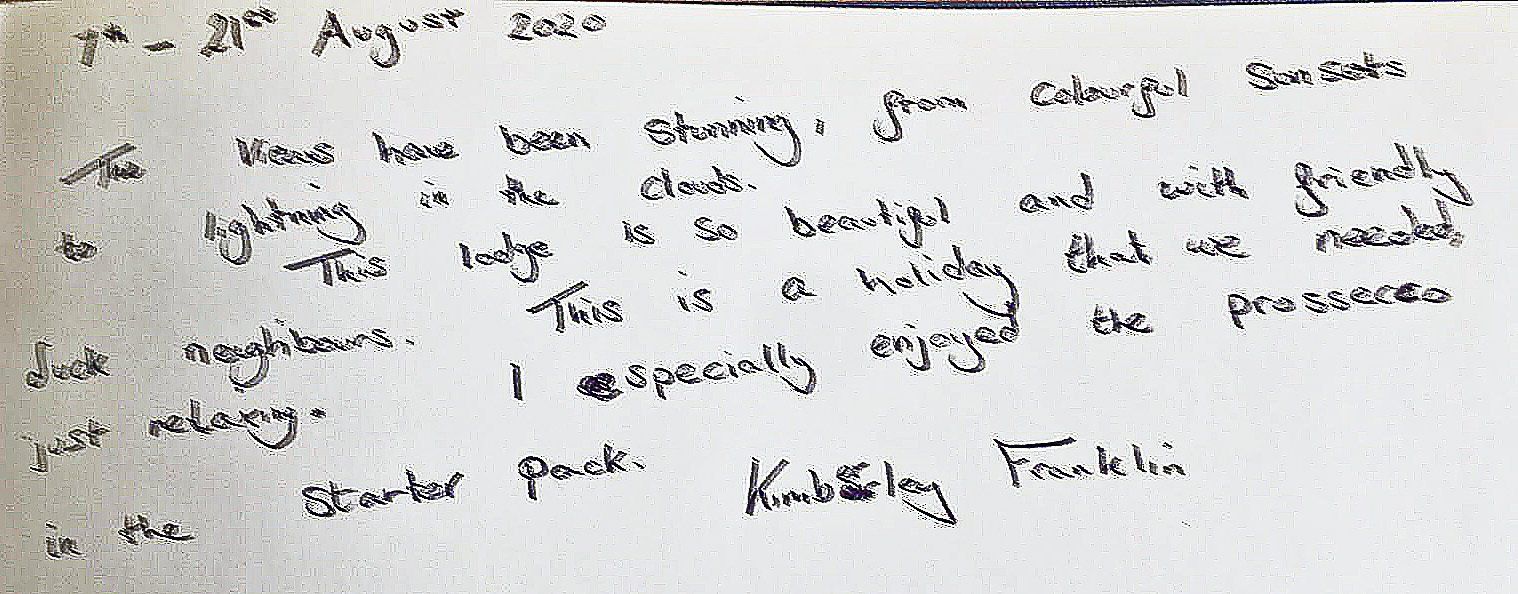 7th - 21st August 2020
The views have been stunning, from colourful sunsets
to lightning in the clouds.
This lodge is so beautiful and with friendly
duck neighbours. This is a holiday that we needed,
just relaxing. I especially enjoyed the prossecco
in the starter pack. Kimberley Franklin